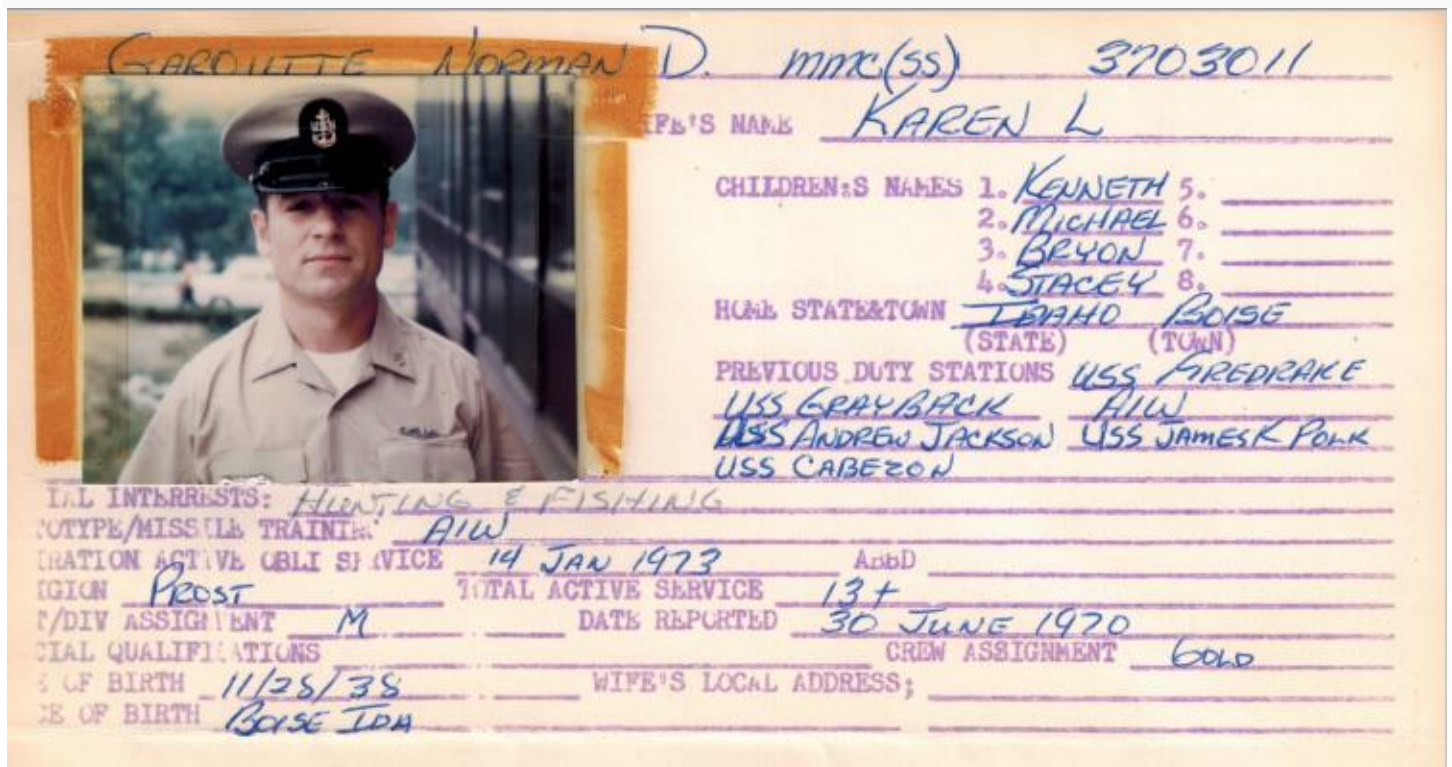 GARDUTTE NORMAN D. mmc(ss) 3703011
IFE'S NAME KAREN L
CHILDREN:S NAMES 1. KENNETH 5.
2. MICHAEL 6.
3. BRYON 7.
4. STACEY 8.
HOME STATE&TOWN IDAHO BOISE
(STATE) (TOWN)
PREVIOUS DUTY STATIONS USS
USS GRAYBACK AIW
USS ANDREW JACKSON USS JAMES K POLK
USS CABEZON
IAL INTERRESTS: HUNTING & FISHING
OTYPE/MISSILE TRAINING AIW
RATION ACTIVE OBLI SERVICE 14 JAN 1973 ABBD
IGION PROST TOTAL ACTIVE SERVICE 13+
T/DIV ASSIGNMENT M DATE REPORTED 30 JUNE 1970
CIAL QUALIFICATIONS CREW ASSIGNMENT GOLD
E OF BIRTH WIFE'S LOCAL ADDRESS;
CE OF BIRTH BOISE IDA